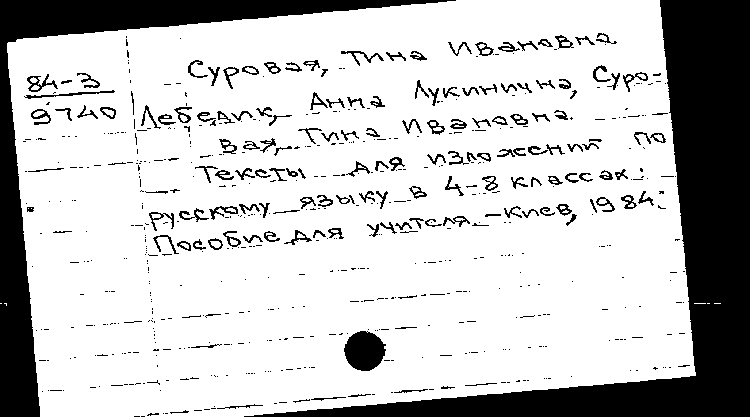 Суровая, Тина Ивановна
84-3
9740
Лебедик, Анна Лукинична, Суро-
вая, Тина Ивановна.
Тексты для изложений по
русскому языку в 4-8 классах:
Пособие для учителя.-Киев, 1984.